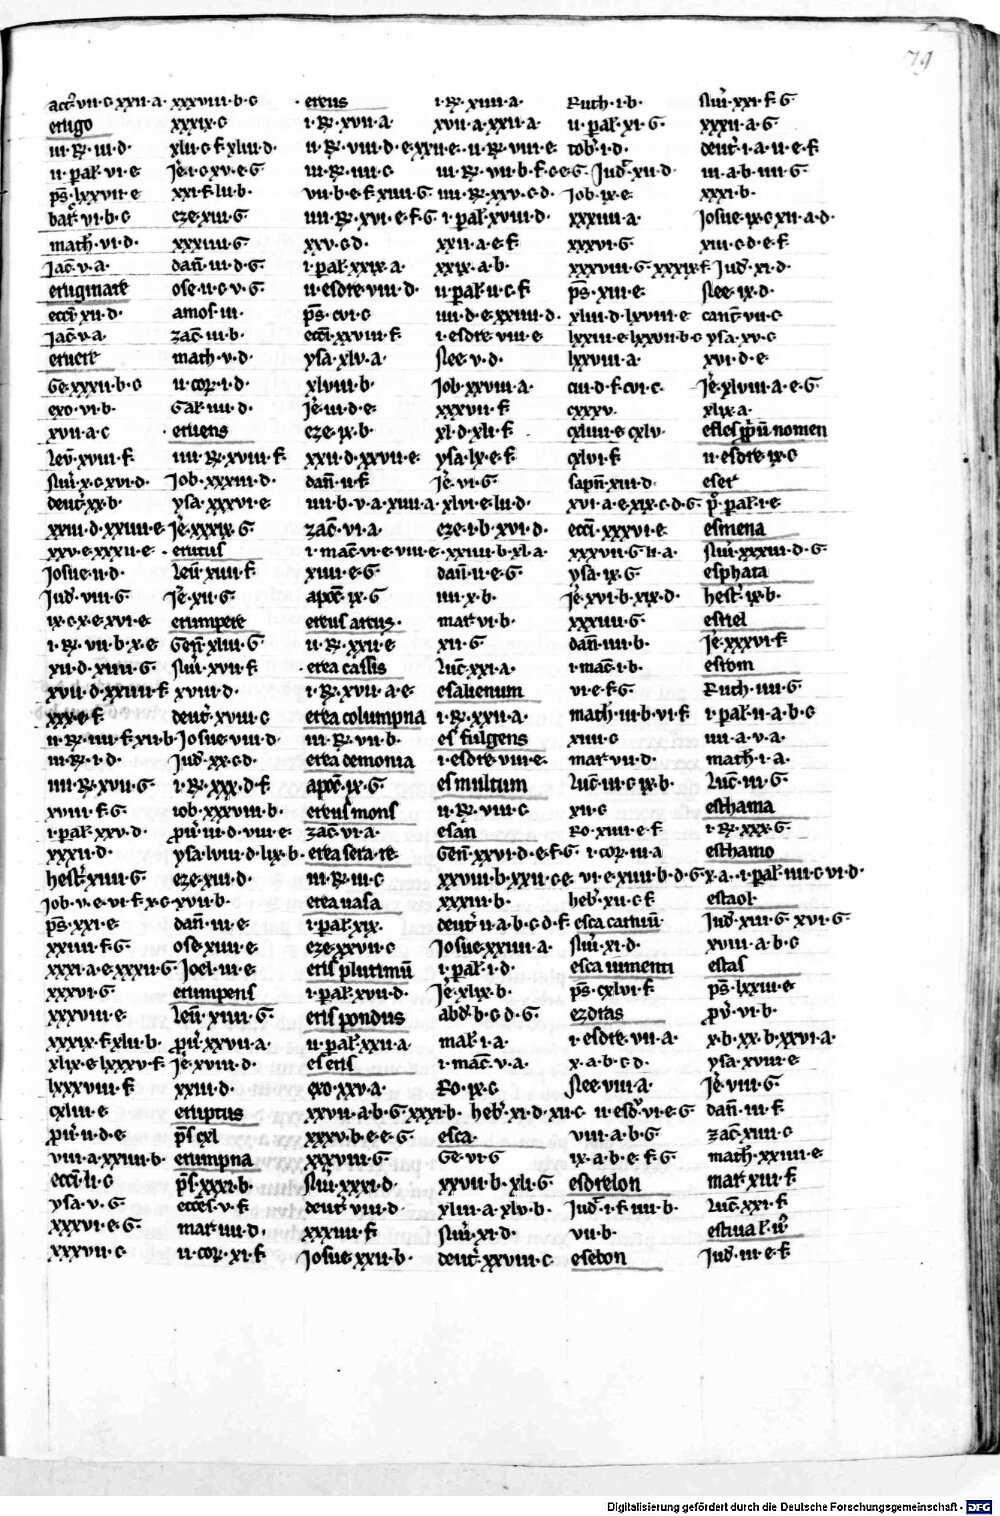 79
acc᷒·vii·c·xxii·a·
erugo
iii·R·iii·d·
ii·paral·vi·e
ps·lxxvii·e
bar·vi·b·c
math·vi·d·
Jac·v·a·
eruginare
ecci·xii·d·
Jac·v·a·
eruere
Ge·xxxii·b·c
exo·vi·b·
xvii·a·c
leu·xviii·f
nui·x·c·xvi·d·
deut·xx·b·
xxiii·d·xxiiii·e
xxv·e·xxxii·e·
Josue·ii·d·
Jud·viii·G·
ix·c·x·e·xvi·e
i·R·vii·b·x·e
xii·d·xiiii·G
xvii·d·xxiiii·f
xxx·e·f
ii·R·iiii·f·xii·b
iii·R·i·d·
iiii·R·xvii·G
xviii·f·G·
i·paral·xxv·d·
xxxii·d·
hest·xiiii·G
Job·v·e·vi·f·x·c·
ps·xxi·e
xxiiii·f·G·
xxxi·a·e·xxxii·G
xxxvi·G
xxxviii·e
xxxix·f·xlii·b·
xlix·e·lxxxv·f
lxxxviii·f
cxliii·e
pru·ii·d·e
viii·a·xxiiii·b·
ecci·li·c
ysa·v·G·
xxxvi·e·G
xxxvii·c·
xxxviii·b·c
xxxix·c
xlii·c·f·xliii·d·
Je·i·c·xv·e·G
xxi·f·lii·b·
eze·xiii·G
xxxiiii·G
dan·iii·d·G·
ose·ii·c·v·G·
amos·iii·
zac·iii·b·
math·v·d·
ii·cor·i·d·
Gal·iiii·d·
eruens
iiii·R·xviii·f
Job·xxxiii·d·
ysa·xxxvi·e
Je·xxxix·G
erutus
leu·xiiii·f
Je·xii·G
erumpere
Gen·xliii·G
nui·xvii·f·
xviii·d·
deut·xviii·c
Josue·viii·d·
Jud·xx·c·d·
i·R·xxx·d·f
iob·xxxviii·b·
pru·iii·d·viii·e·
ysa·lviii·d·lix·b·
eze·xiii·d·
xvii·b·
dan·iii·e
ose·xiiii·e
Joel·iii·e
erumpens
leu·xiiii·G
pru·xxvii·a
Je·xviii·d·
xxiii·d·
eruptus
ps·cxl
erumpna
ps·xxxi·b·
ecces·v·f
mar·iiii·d·
ii·cor·xi·f
ereus
i·R·xvii·a
ii·R·viii·d·e·xxii·e·
iii·R·iiii·c
vii·b·e·f·xiiii·G
iiii·R·xvi·e·f·G
xxv·c·d·
i·paral·xxix·a·
ii·esdre·viii·d·
ps·cvi·c
ecci·xxviii·f
ysa·xlv·a·
xlviii·b·
Je·iii·d·e
eze·ix·b·
xxii·d·xxvii·e·
dan·ii·f
iiii·b·v·a·xiiii·a·
zac·vi·a
i·mac·vi·e·viii·e·
xiiii·e·G
apoc·ix·G
ereus arcus·
ii·R·xxii·e
erea cassis
i·R·xvii·a·e
erea columpna
iii·R·vii·b·
erea demonia
apoc·ix·G
ereus mons
zac·vi·a·
erea sera·re·
iii·R·iii·c
erea uasa
i·paral·xix·
eze·xxvii·c
eris plurimu
i·paral·xvii·d·
eris pondus
ii·paral·xxii·a
es eris
exo·xxv·a·
xxvii·a·b·G·xxxi·b·
xxxv·b·e·e·G
xxxviii·G
nui·xxxi·d·
deut·viii·d·
xxxiiii·f
Josue·xxii·b·
i·R·xiiii·a·
xvii·a·xxii·a·
ii·R·viii·e
iii·R·vii·b·f·c·e·G·
iiii·R·xxv·c·d·
i·paral·xviii·d·
xxii·a·e·f
xxix·a·b·
ii·paral·ii·c·f
iiii·d·e·xxiiii·d·
i·esdre·viii·e
nee·v·d·
Job·xxviii·a·
xxxvii·f
xl·d·xli·f
ysa·lx·e·f
Je·vi·G
xlvi·e·lii·d·
eze·i·b·xvi·d·
xxiiii·b·xl·a·
dan·ii·e·G
iiii·x·b·
mar·vi·b·
xii·G
luc·xxi·a·
es alienum
i·R·xxii·a·
es fulgens
i·esdre·viii·e·
es multum
ii·R·viii·c
esan
Gen·xxvi·d·e·f·G
xxviii·b·xxii·c·e·
xxxiii·b·
deut·ii·a·b·c·d·f·
Josue·xxiiii·a·
i·paral·i·d·
Je·xlix·b·
abd·b·c·d·G·
mal·i·a·
i·mac·v·a·
Ro·ix·c
heb·xi·d·xii·c
esca
Ge·vi·G
xxvii·b·xli·G
xliii·a·xlv·b·
nui·xi·d·
deut·xxviii·c
Ruth·i·b·
ii·paral·xi·G·
tob·i·d·
Jud·xii·d·
Job·ix·e
xxxiiii·a·
xxxvi·G
xxxviii·G·xxxix·f·
ps·xiii·e·
xliii·d·lxviii·e
lxxiii·e·lxxvii·b·c
lxxviii·a·
ciii·d·f·cvi·c·
cxxxv·
cxliiii·e·cxlv·
cxlvi·f
sapn·xiii·d·
xvi·a·e·xix·c·d·G·
ecci·xxxvi·e·
xxxvii·G·li·a·
ysa·ix·G
Je·xvi·b·xix·d·
xxxiiii·G·
dan·iiii·b·
i·mac·i·b·
vi·e·f·G·
math·iii·b·vi·f
xiiii·c
mar·vii·d·
luc·iii·c·ix·b·
xii·c
Ro·xiiii·e·f
i·cor·iii·a
vi·e·xiii·b·d·G·x·a·
heb·xii·c·f
esca carnium
nui·xi·d·
esca iumenti
ps·cxlvi·f
ezdras
i·esdre·vii·a·
x·a·b·c·d·
nee·viii·a·
ii·esd·vi·e·G
viii·a·b·G·
ix·a·b·e·f·G
esdrelon
Jud·i·f·iiii·b·
vii·b·
esebon
nui·xxi·f·G
xxxii·a·G
deut·i·a·ii·e·f
iii·a·b·iiii·G·
xxxi·b·
Josue·ix·c·xii·a·d·
xiii·c·d·e·f
Jud·xi·d·
nee·ix·d·
cant·vii·c
ysa·xv·c
xvi·d·e
Je·xlviii·a·e·G
xlix·a·
esles ppu nomen
ii·esdre·ix·c
eser
p·paral·i·e
esmena
nui·xxxiii·d·G·
esphata
hest·ix·b·
esriel
Je·xxxvi·f
esrom
Ruth·iiii·G
i·paral·ii·a·b·c
iiii·a·v·a·
math·i·a·
luc·iii·G
esthama
i·R·xxx·G·
esthamo
i·paral·iiii·c·vi·d·
estaol
Jud·xiii·G·xvi·G
xviii·a·b·c
estas
ps·lxxiii·e
pru·vi·b·
x·b·xx·b·xxvi·a·
ysa·xviii·e
Je·viii·G
dan·iii·f
zac·xiiii·c
math·xxiiii·e
mar·xiii·f
luc·xxi·f
estual
Jud·iii·e·f
Digitalisierung gefördert durch die Deutsche Forschungsgemeinschaft - DFG